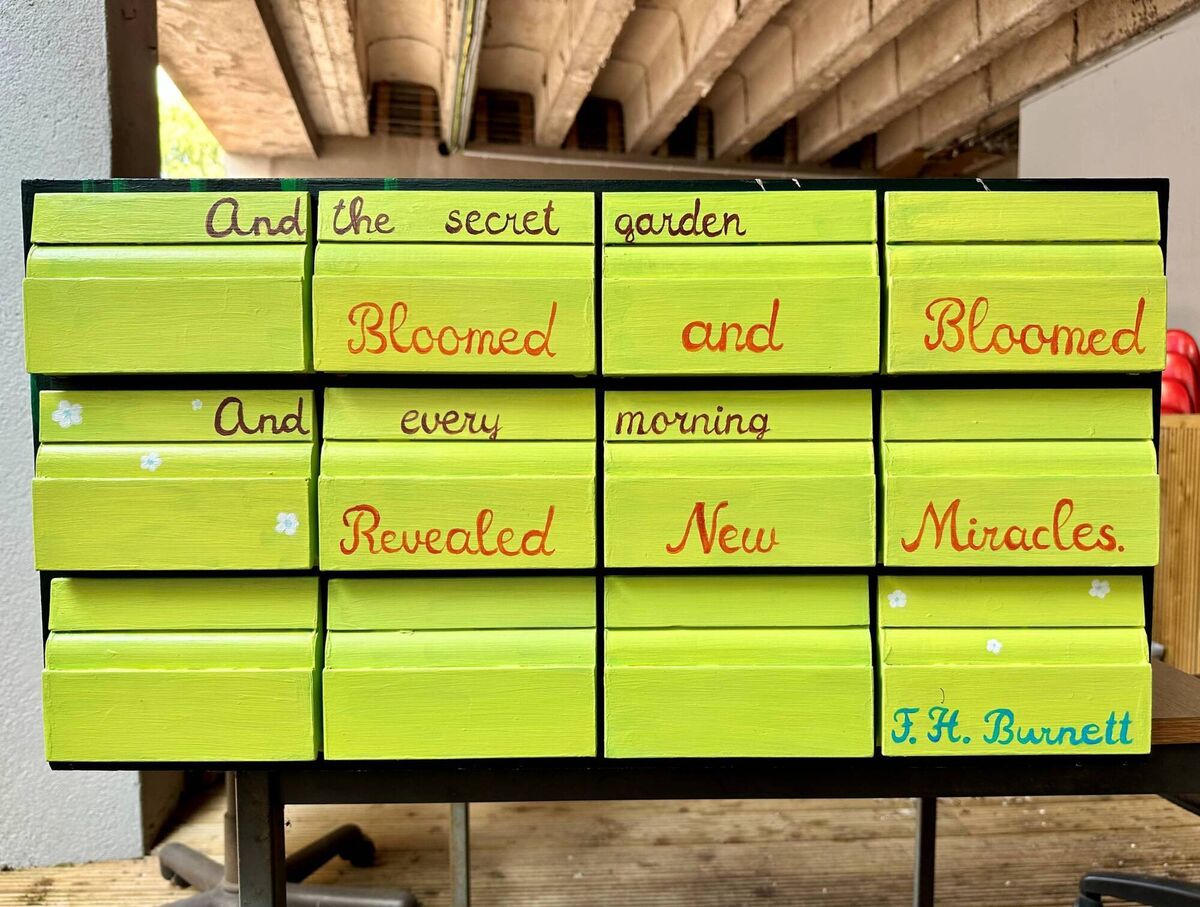 And the secret garden
Bloomed and Bloomed
And every morning
Revealed New Miracles.
F. H. Burnett